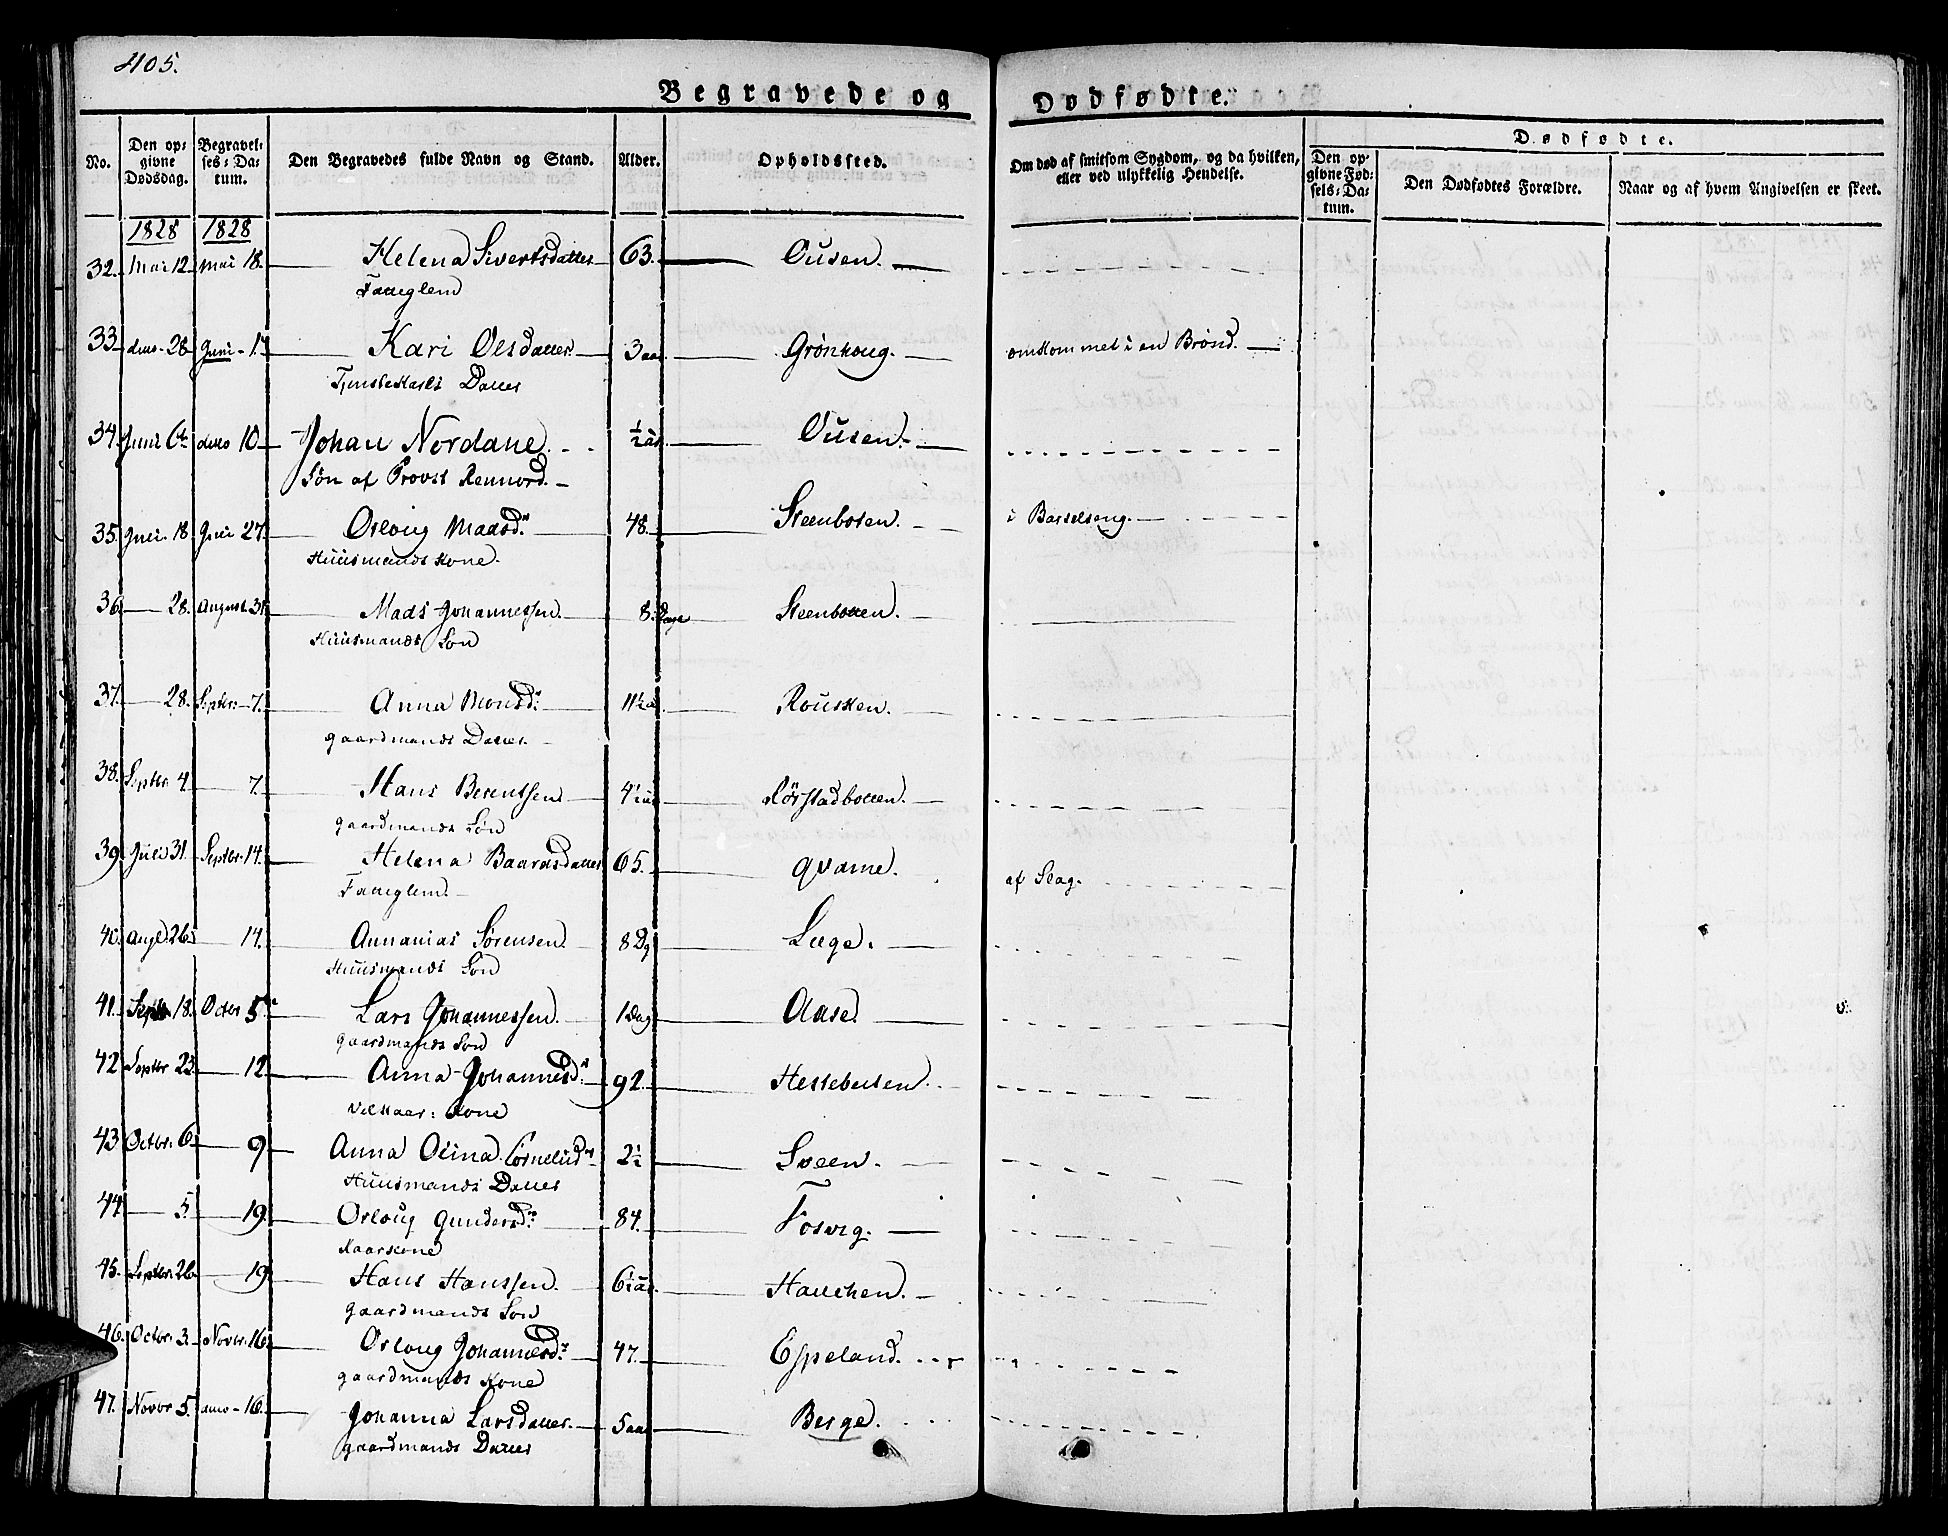 405.
Begravede og Dødfødte.
No.
Den opgivne Dødsdag.
Begravelses-Datum.
Den Begravedes fulde Navn og Stand.
Alder.
Opholdssted.
Om død af smitsom Sygdom, og da hvilken, eller ved ulykkelig Hendelse.
Dødfødte.
Den opgivne Fødsels-Datum.
Den Dødfødtes Forældre.
Naar og af hvem Angivelsen er skeet.
1828 1828
32. Mai 12. Mai 18. Helena Sivertsdatter 63. Ousen.
33. 28 Juni 1 Kari Olsdatter 3 aar Grønhoug. omkommet i en Brønd.
Tjenstekarls Datter
34. Juni 6te 10 Johan Nordane ½ aar Ousen.
Søn af Provst Rennord.
35. 18 27. Osloug Madsdr. 48. Steenboten. i Barselseng.
Huusmands Kone.
36. 28. August 31. Mads Johannessen 8 Dage Steenbotten.
Huusmands Søn
37. 28. Septbr. 7. Anna Monsdr. 11½ Rousken.
gaardmands Datter
38. Septbr 4 7. Hans Berentsen 4½ aar Rørstadbotten.
gaardmands Søn
39. Juli 31. Septbr. 14. Helena Baardsdatter 65. Qvame. af Slag.
40. 26 14. Annanias Sørensen 8 Dg Læge.
Huusmands Søn
41. Septbr 18. Octbr 5te Lars Johannessen. 1 Dag Aase.
gaardmands Søn
42 Septbr 23 12. Anna Johannesdr 92. Hestebeiten.
Kone
43. Octbr: 6 9 Anna Olina Cornelisdr 2½ Sveen.
Huusmands Datter
44 5. 19. Osloug Gundersdr. 84. Fosvig.
45. Septbr. 26 19. Hans Hanssen. 6½ aar
gaardmands Søn
46. Octbr: 3. Novbr. 16 Osloug Johannesdr. 47. Espeland.
gaardmands Kone
47. Novbr 5. 16. Johanna Larsdatter. 5 aar Berge.
gaardmands Datter